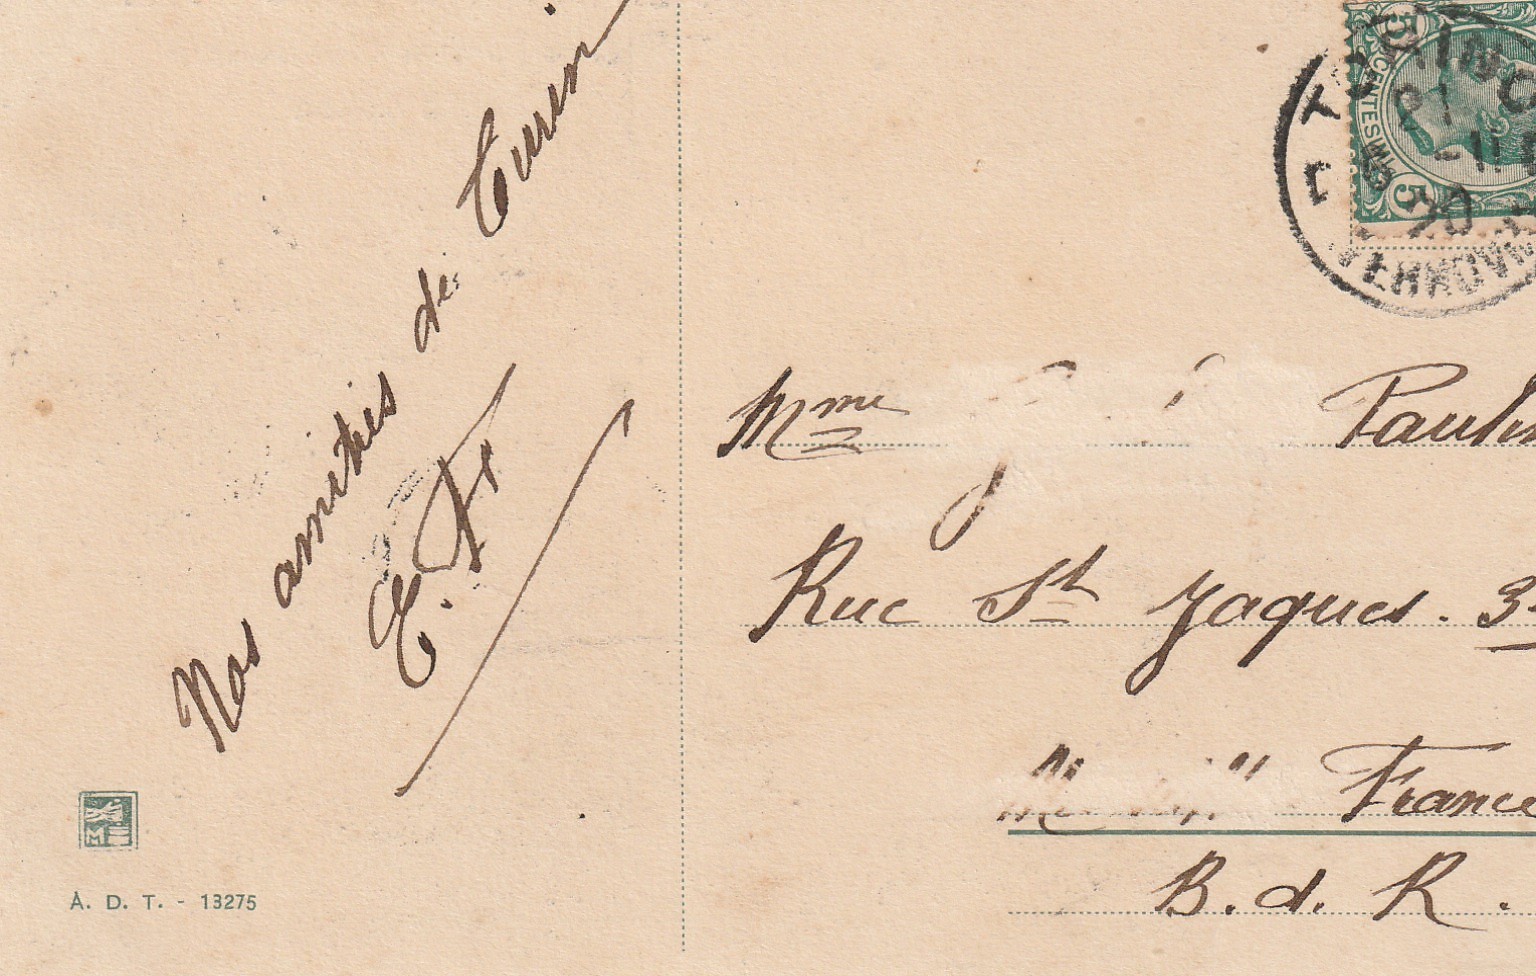 Nos amitiés de Turin
E. F.
M
A. D. T. - 13275
5 CENTESIMI 5
TORINO
21 -11
20
FERROVIA
Mme Paulin
Rue St Jaques. 3
France
B. d. R.